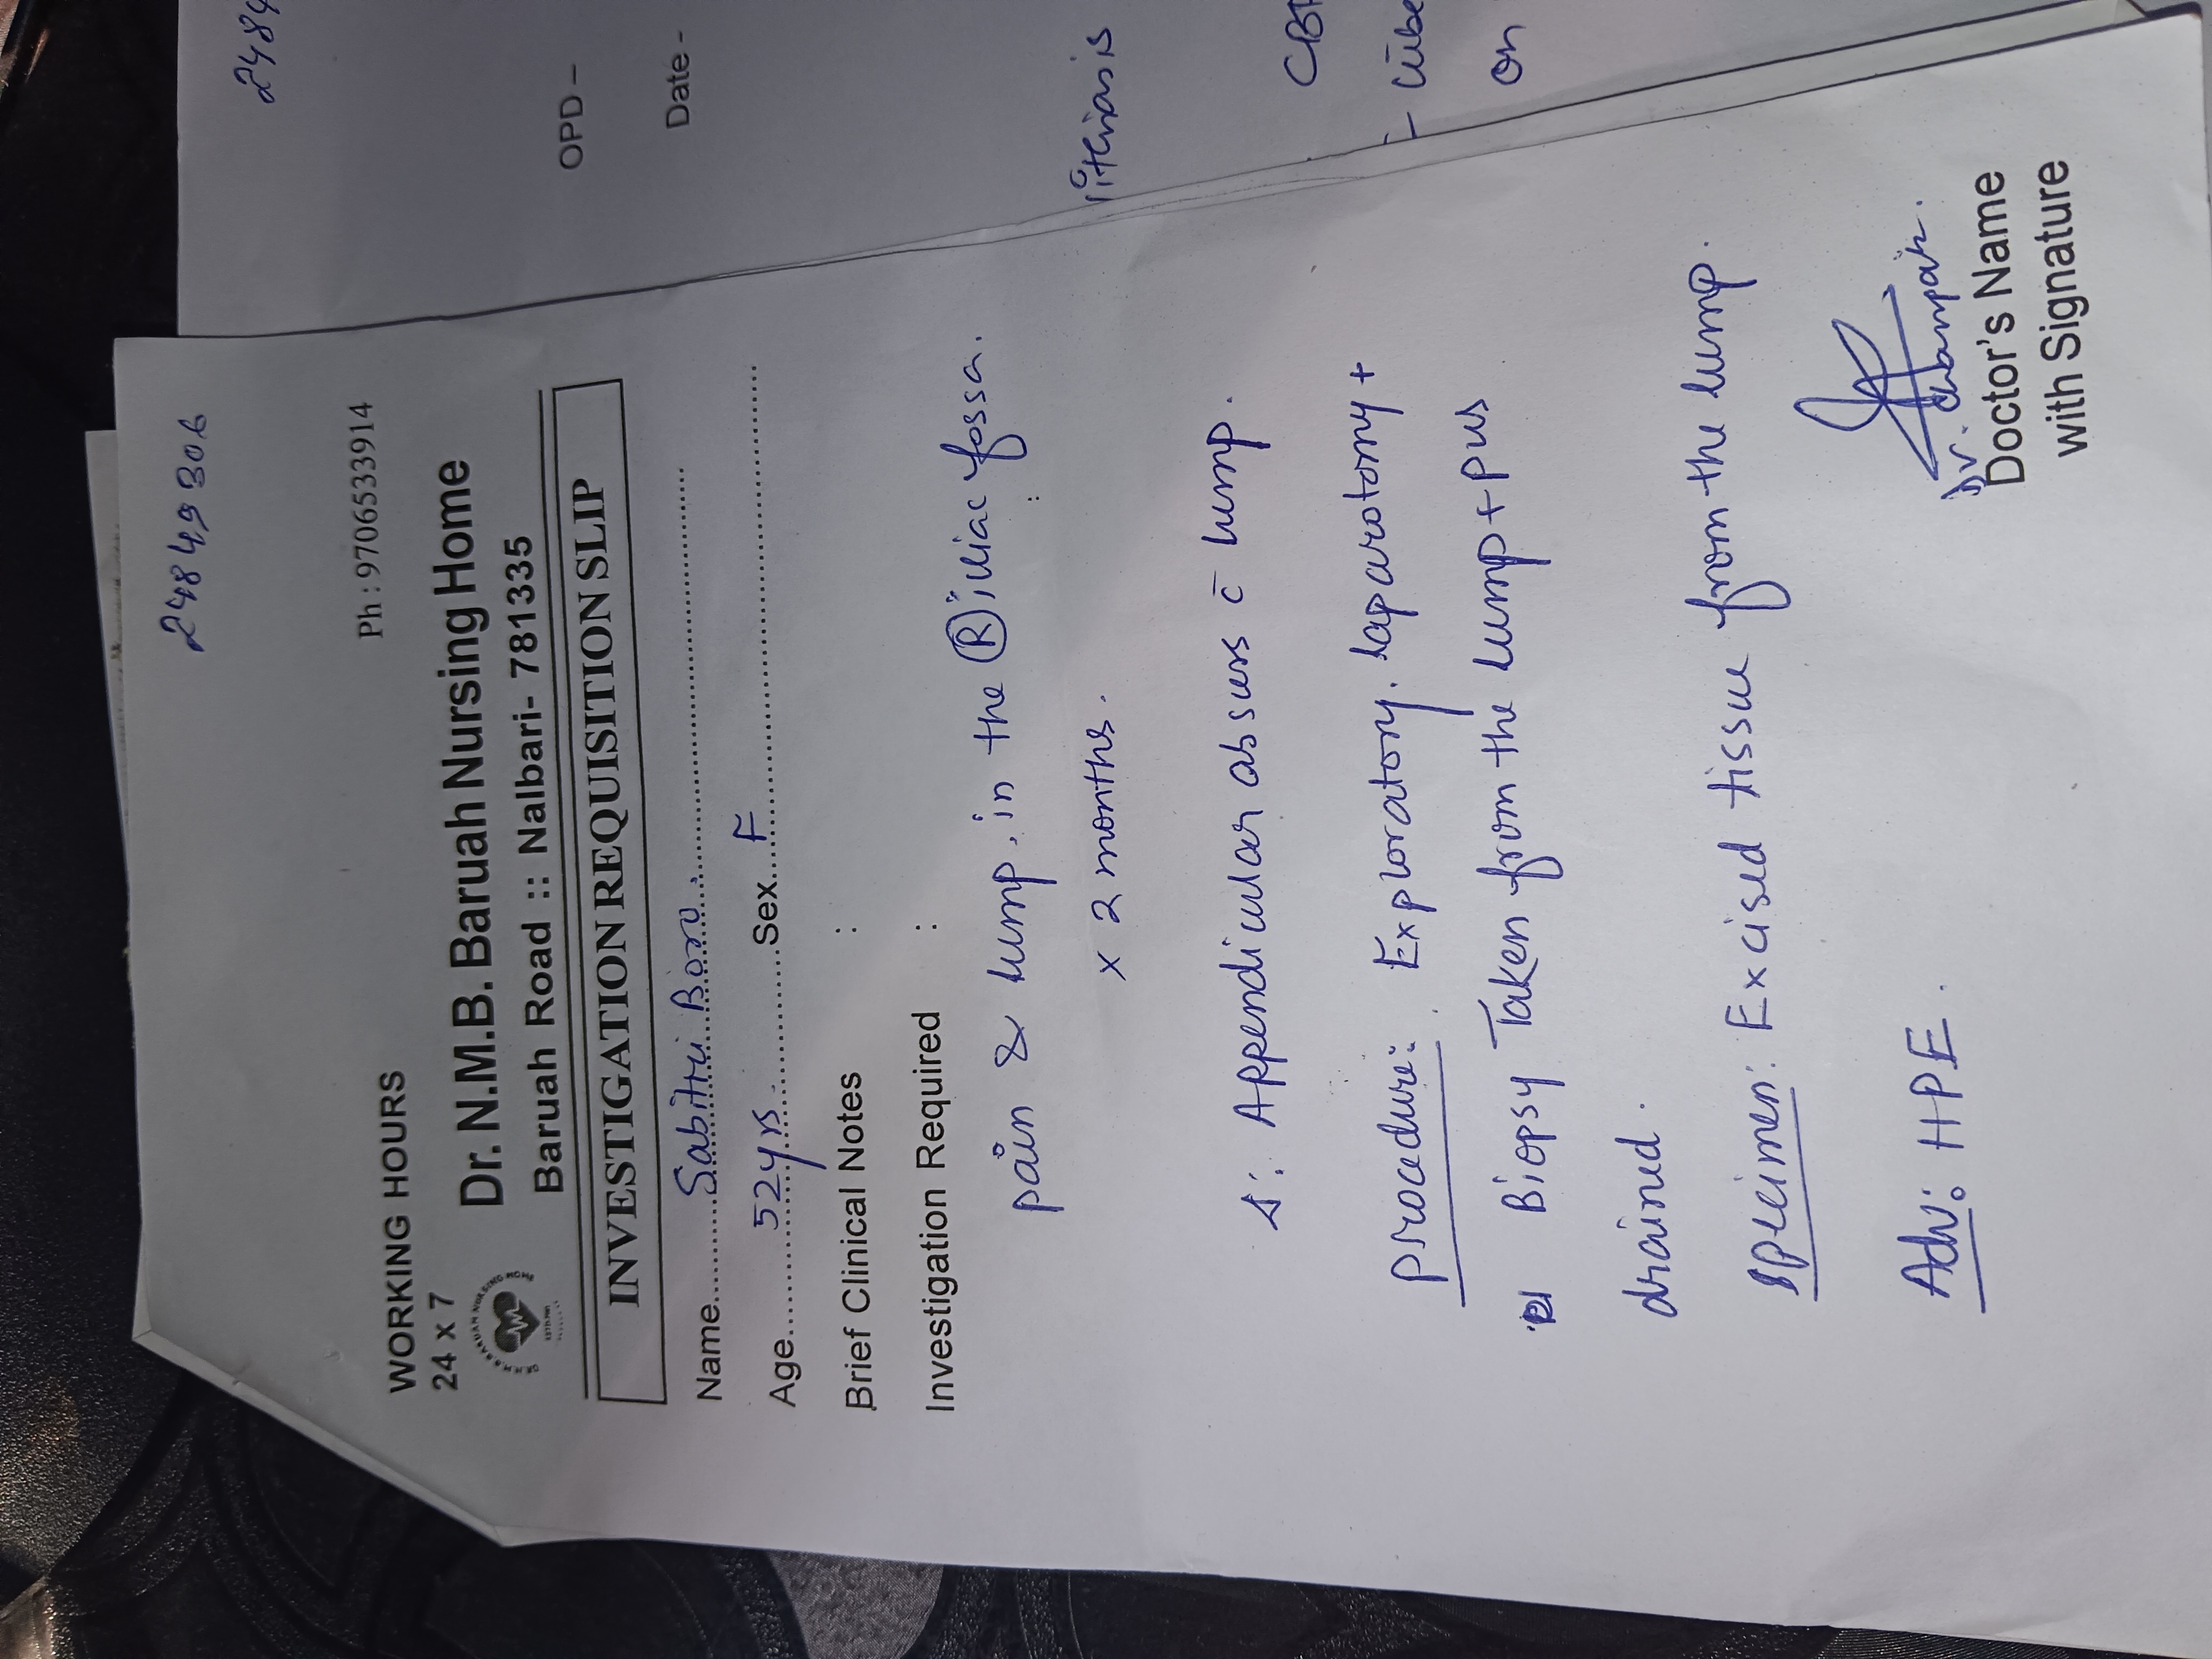 24849306
WORKING HOURS
24 x 7
Ph : 9706533914
Dr. N.M.B. Baruah Nursing Home
Baruah Road :: Nalbari- 781335
INVESTIGATION REQUISITION SLIP
Name Sabitri Boro
Age 52yrs Sex F
Brief Clinical Notes :
Investigation Required :
pain & lump in the (R) iliac fossa.
x 2 months.
Appendicular abscess c̄ lump.
procedure: Exploratory laparotomy +
Biopsy Taken from the lump + pus
drained.
specimen: Excised tissue from the lump.
Adv: HPE.
Dr.
Doctor's Name
with Signature
2484
OPD -
Date -
CBD
on